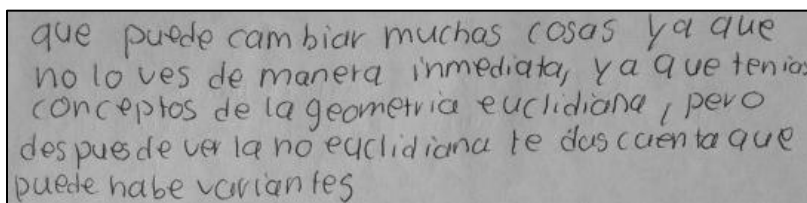 que puede cambiar muchas cosas ya que
no lo ves de manera inmediata, ya que tenias
conceptos de la geometria euclidiana, pero
despues de ver la no euclidiana te das cuenta que
puede habe variantes